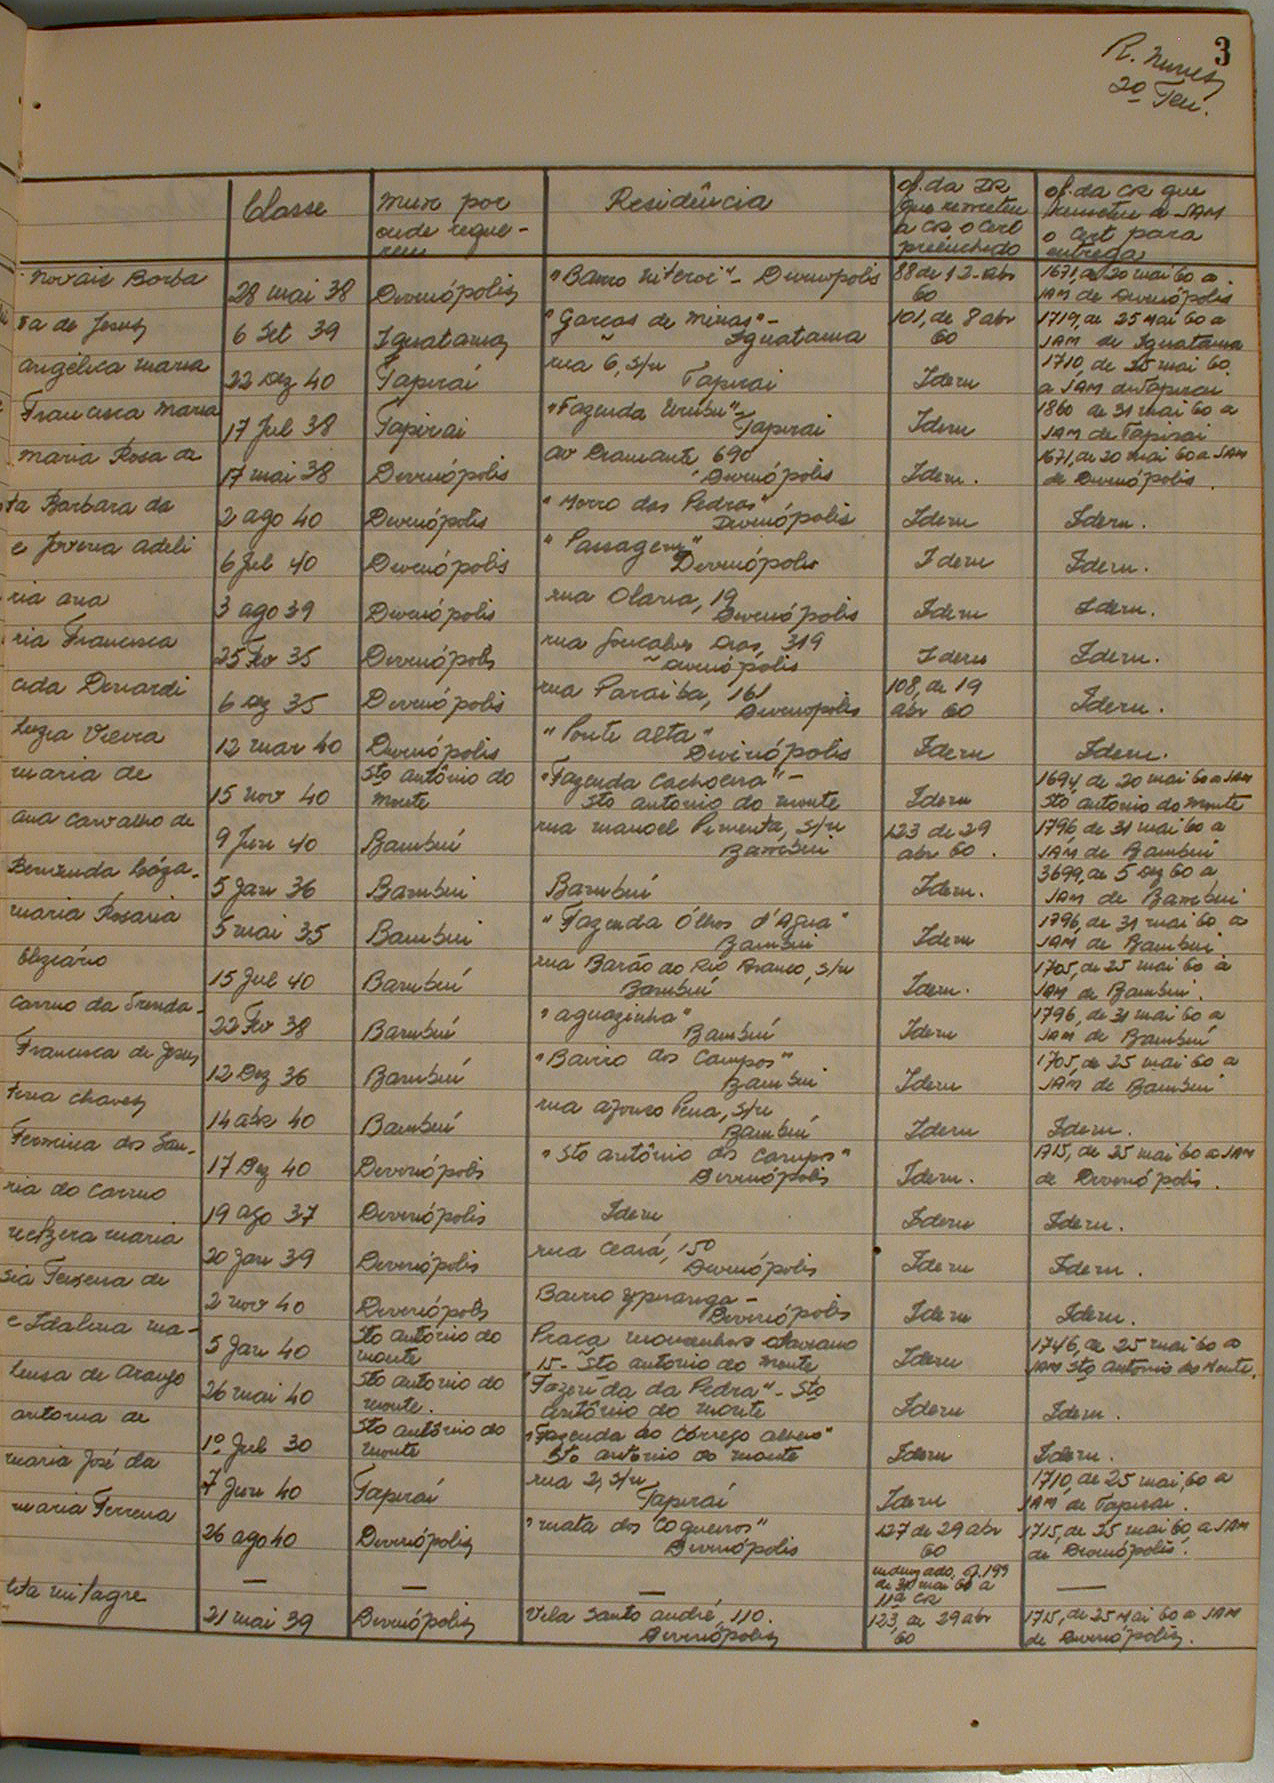 3
R. Nunes
2º Ten.
Classe
Mun por onde reque-reu
Residência
of. da DR que remeteu a CR o Cert preenchido
of. da CR que remeteu a JAM o Cert para entrega
Novais Borba 28 mai 38 Divinópolis "Bairro Niteroi" - Divinópolis 88 de 12-abr 60 1671, de 20 mai 60 a JAM de Divinópolis
ta de Jesus 6 Set 39 Iguatama "Garças de Minas" - Iguatama 101, de 8 abr 60 1719, de 25 mai 60 a JAM de Iguatama
Angélica Maria 22 Dez 40 Tapiraí rua 6, s/n Tapirai Idem 1710, de 25 mai 60 a JAM de Tapirai
Francisca Maria 17 Jul 38 Tapirai "Fazenda Urubu" - Tapirai Idem 1860 de 31 mai 60 a JAM de Tapirai
Maria Rosa de 17 mai 38 Divinópolis av Diamante 690 Divinópolis Idem. 1671, de 20 mai 60 a JAM de Divinópolis.
ta Bárbara da 2 ago 40 Divinópolis "Morro das Pedras" Divinópolis Idem Idem.
e Jovina Adeli 6 Jul 40 Divinópolis "Passagem" Divinópolis Idem Idem.
ria Ana 3 ago 39 Divinópolis rua Olaria, 19 Divinópolis Idem Idem.
ria Francisca 25 Fev 35 Divinópolis rua Goncalves Dias, 319 Divinópolis Idem Idem.
cida Denardi 6 Dez 35 Divinópolis rua Paraiba, 161 Divinopolis 108, de 19 abr 60 Idem.
Luzia Vieira 12 mar 40 Divinópolis "Ponte Alta" Divinópolis Idem Idem.
Maria de 15 nov 40 Sto Antônio do Monte "Fazenda Cachoeira" - Sto Antonio do Monte Idem 1694, de 20 mai 60 a JAM Sto Antônio do Monte
Ana Carvalho de 9 Jun 40 Bambuí rua Manoel Pimenta, s/n Bambui 123 de 29 abr 60. 1796 de 31 mai 60 a JAM de Bambui
5 Jan 36 Bambui Bambuí Idem. 3699, de 5 Dez 60 a JAM de Bambui
Maria Rosaria 5 mai 35 Bambui "Fazenda Ólhos d'Agua" Bambui Idem 1796, de 31 mai 60 a JAM de Bambui
Elziário 15 Jul 40 Bambuí rua Barão do Rio Branco, s/n Bambuí Idem. 1705, de 25 mai 60 a JAM de Bambui.
Carmo da Trinda- 22 Fev 38 Bambuí "Aguazinha" Bambuí Idem 1796, de 31 mai 60 a JAM de Bambuí
Francisca de Jesus 12 Dez 36 Bambuí "Bairro dos Campos" Bambui Idem 1705, de 25 mai 60 a JAM de Bambui
Chaves 14 abr 40 Bambuí rua Afonso Pena, s/n Bambuí Idem Idem.
Firmina dos San- 17 Dez 40 Divinópolis "Sto Antônio dos Campos" Divinópolis Idem. 1715, de 25 mai 60 a JAM de Divinópolis.
ria do Carmo 19 ago 37 Divinópolis Idem Idem Idem.
Maria 20 Jan 39 Divinópolis rua Ceará, 150 Divinópolis Idem Idem.
sia Teixeira de 2 nov 40 Divinópolis Bairro Ypiranga - Divinópolis Idem Idem.
e Idalina Ma- 5 Jan 40 Sto Antônio do Monte Praca Otaviano 15 - Sto Antonio do Monte Idem 1746, de 25 mai 60 a JAM Sto Antonio do Monte.
Luisa de Araujo 26 mai 40 Sto Antonio do Monte. "Fazenda da Pedra" - Sto Antônio do Monte Idem Idem.
Antonia de 1º Jul 30 Sto Antônio do Monte "Fazenda do Córrego Alheio" Sto Antonio do Monte Idem Idem.
Maria José da 7 Jun 40 Tapiraí rua 2, s/n Tapiraí Idem 1710, de 25 mai, 60 a JAM de Tapirai.
Maria Ferreira 26 ago 40 Divinópolis "Mata dos Coqueiros" Divinópolis 127 de 29 abr 60 1715, de 25 mai 60 a JAM de Divinópolis.
— — — of. 199 de 30 mai 60 a 11ª CR —
Milagre 21 mai 39 Divinópolis Vila Santo André, 110. Divinópolis 123, de 29 abr 60 1715, de 25 mai 60 a JAM de Divinópolis.